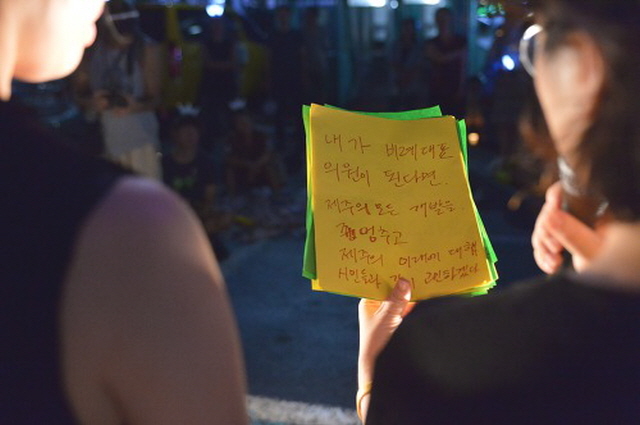 내가 비례대표
의원이 된다면.
제주의 모든 개발을
멈추고
제주의 미래에 대해
시민들과 같이 고민하겠다